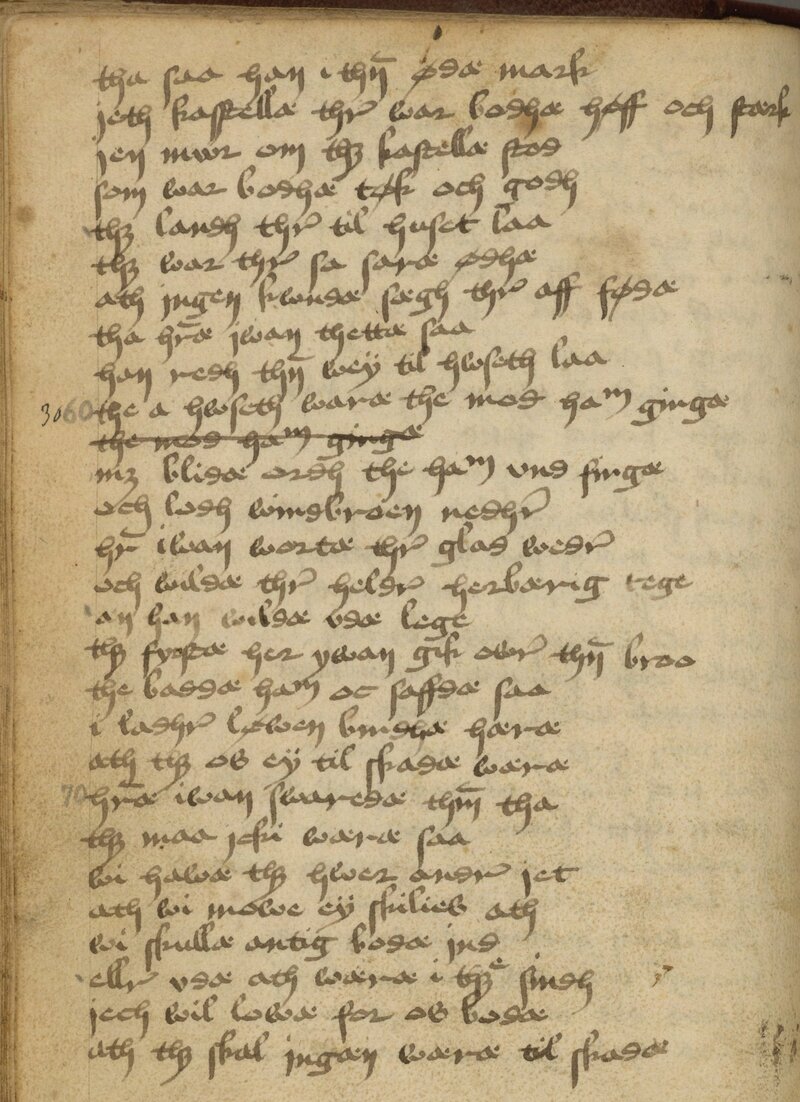 tha saa han i thn̄ ødæ mark
jeth kastellæ thr̛ war bodhæ høff och stærk
jen mwr om thꝫ kastellæ stod
som war bodhæ tøk och godh
thꝫ landh thr̛ til huset laa
thꝫ war thr̛ sa saræ ødhæ
ath jngen kwndæ sægh thr̛ aff fødæ
tha hr̄æ jwan thettæ saa
han redh thn̄ wey til hwseth laa
3060 the a hwseth waræ the mod haᵐ gingæ
the mod haᵐ gingæ
mꝫ blidæ ordh the haᵐ vnd fingæ
och lodh windbroen nedhr̛
hr̄ iwan wortæ thr̛ glad wedr̛
och wildæ thr̛ heldr̛ herbærig tege
æn han wildæ vdæ lege
thꝫ fyrstæ her ywan gik owr̛ thn̄ broo
the baddæ haᵐ oc saffdæ saa
i ladhr̛ løwen bindhæ hæræ
ath thꝫ os ey til skadæ wæræ
70 hr̄æ iwan swaredæ thm̄ tha
thꝫ maa jcki wæræ saa
wi hawæ thꝫ hwer andr̛ jet
ath wi mowe ey skilies ath
wi skullæ antig bodæ jnd
ellr̛ vdæ ath wæræ i thꝫᵉ sindh
jech wil lowæ for os bodæ
ath thꝫ skal jngæn wæræ til skadæ